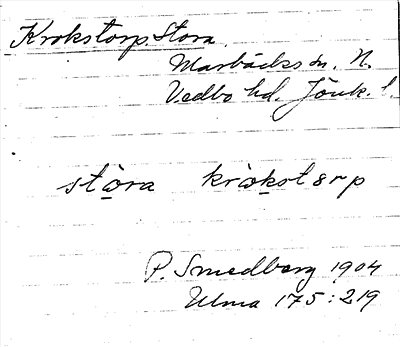 Krokstorp. Stora.
Marbäcks sn. N.
Vedbo hd. Jönk. l.
stὼra krὼkst8rp
P. Smedberg 1904
Ulma 175:219